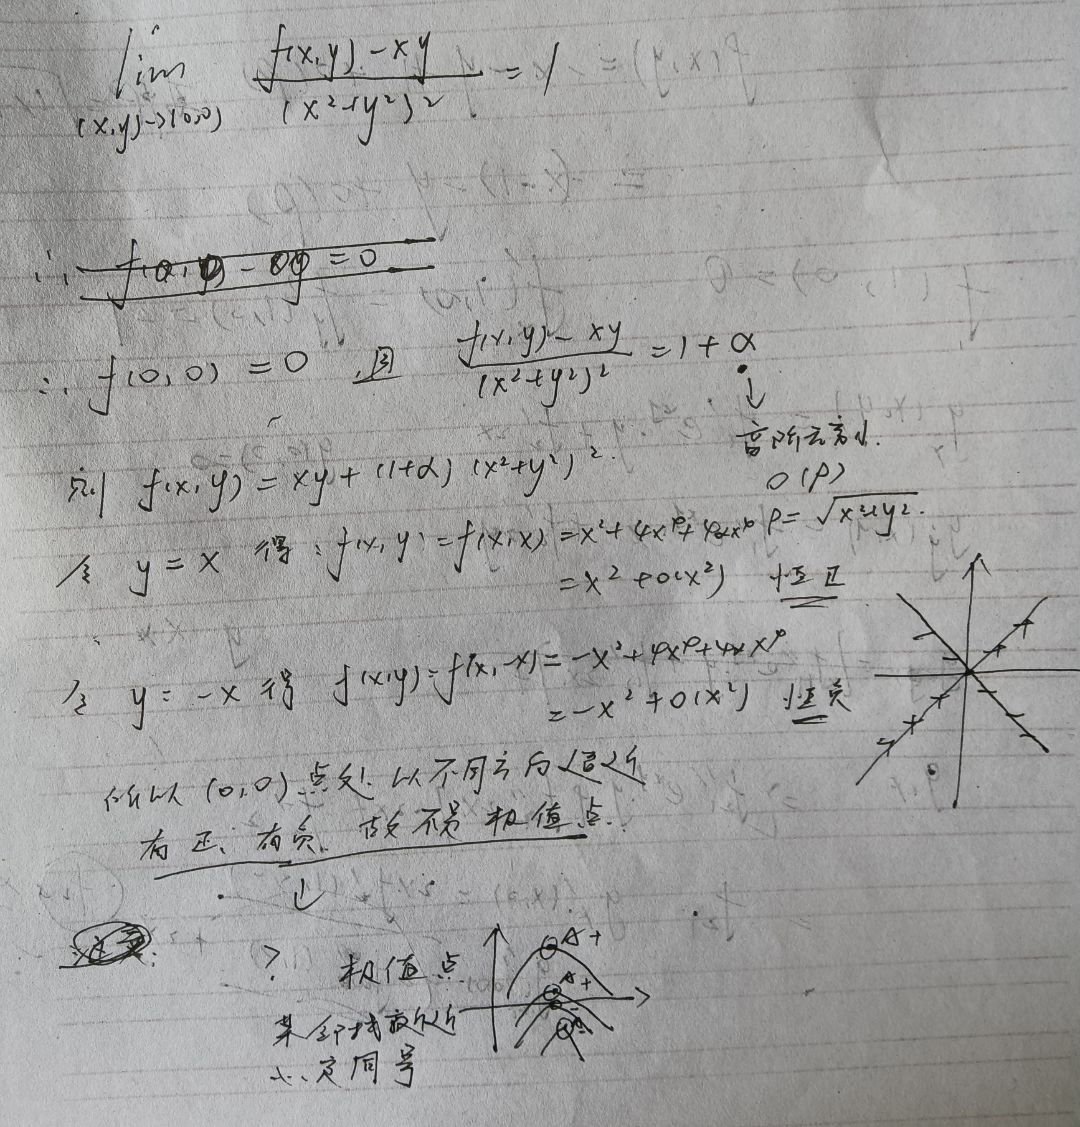 lim (x,y)→(0,0) f(x,y)-xy / (x²+y²)² = 1
∴ f(0,0) = 0 , 且 f(x,y)-xy / (x²+y²)² = 1+α
↓
高阶无穷小.
则 f(x,y) = xy + (1+α)(x²+y²)².
o(ρ)
ρ = √x²+y².
令 y = x 得: f(x,y) = f(x,x) = x²+4x⁴+4αx⁴
= x² + o(x²) 恒正
令 y = -x 得 f(x,y) = f(x,-x) = -x²+4x⁴+4αx⁴
= -x² + o(x²) 恒负
所以 (0,0) 点处 以不同方向
有正、有负, 故不是 极值点.
↓
? 极值点
A +
A +
某邻域
一定同号